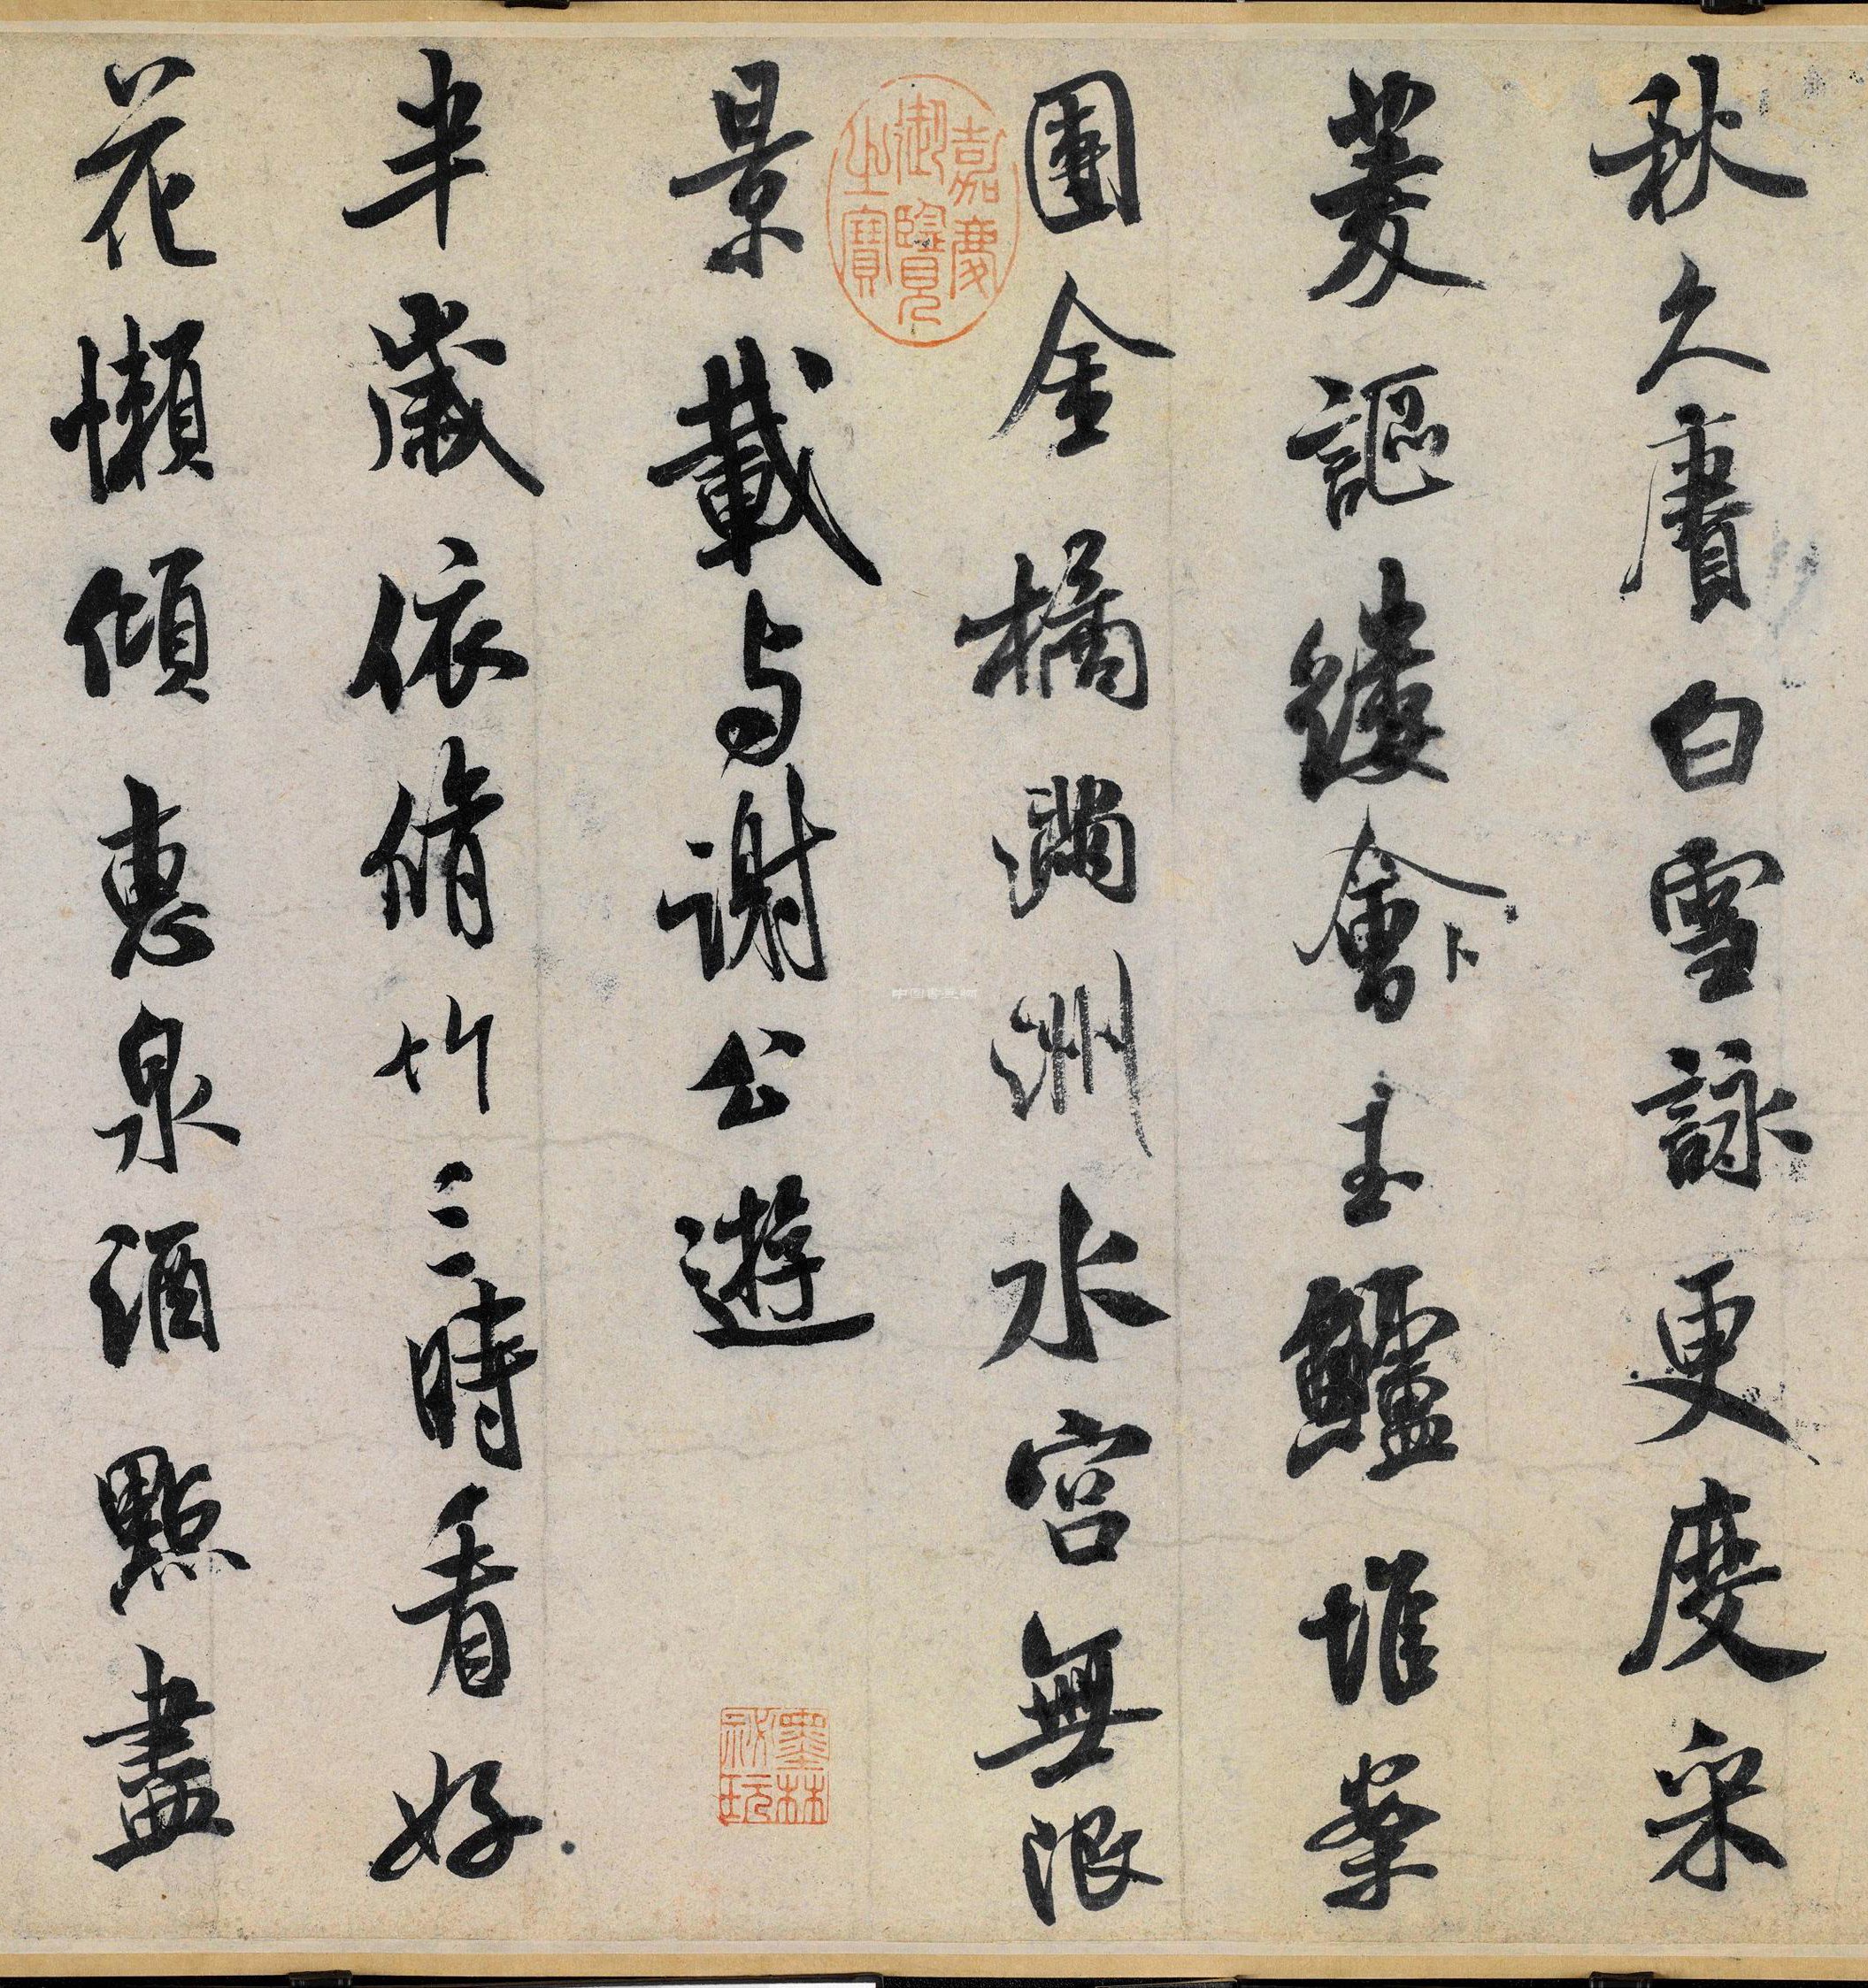 秋久賡白雪詠更度采
菱謳縷會卜玉鱸堆案
團金橘滿洲水宮無限
嘉慶御覽之寶
景載与謝公遊
墨林祕玩
半歲依脩竹三時看好
花懶傾惠泉酒點盡